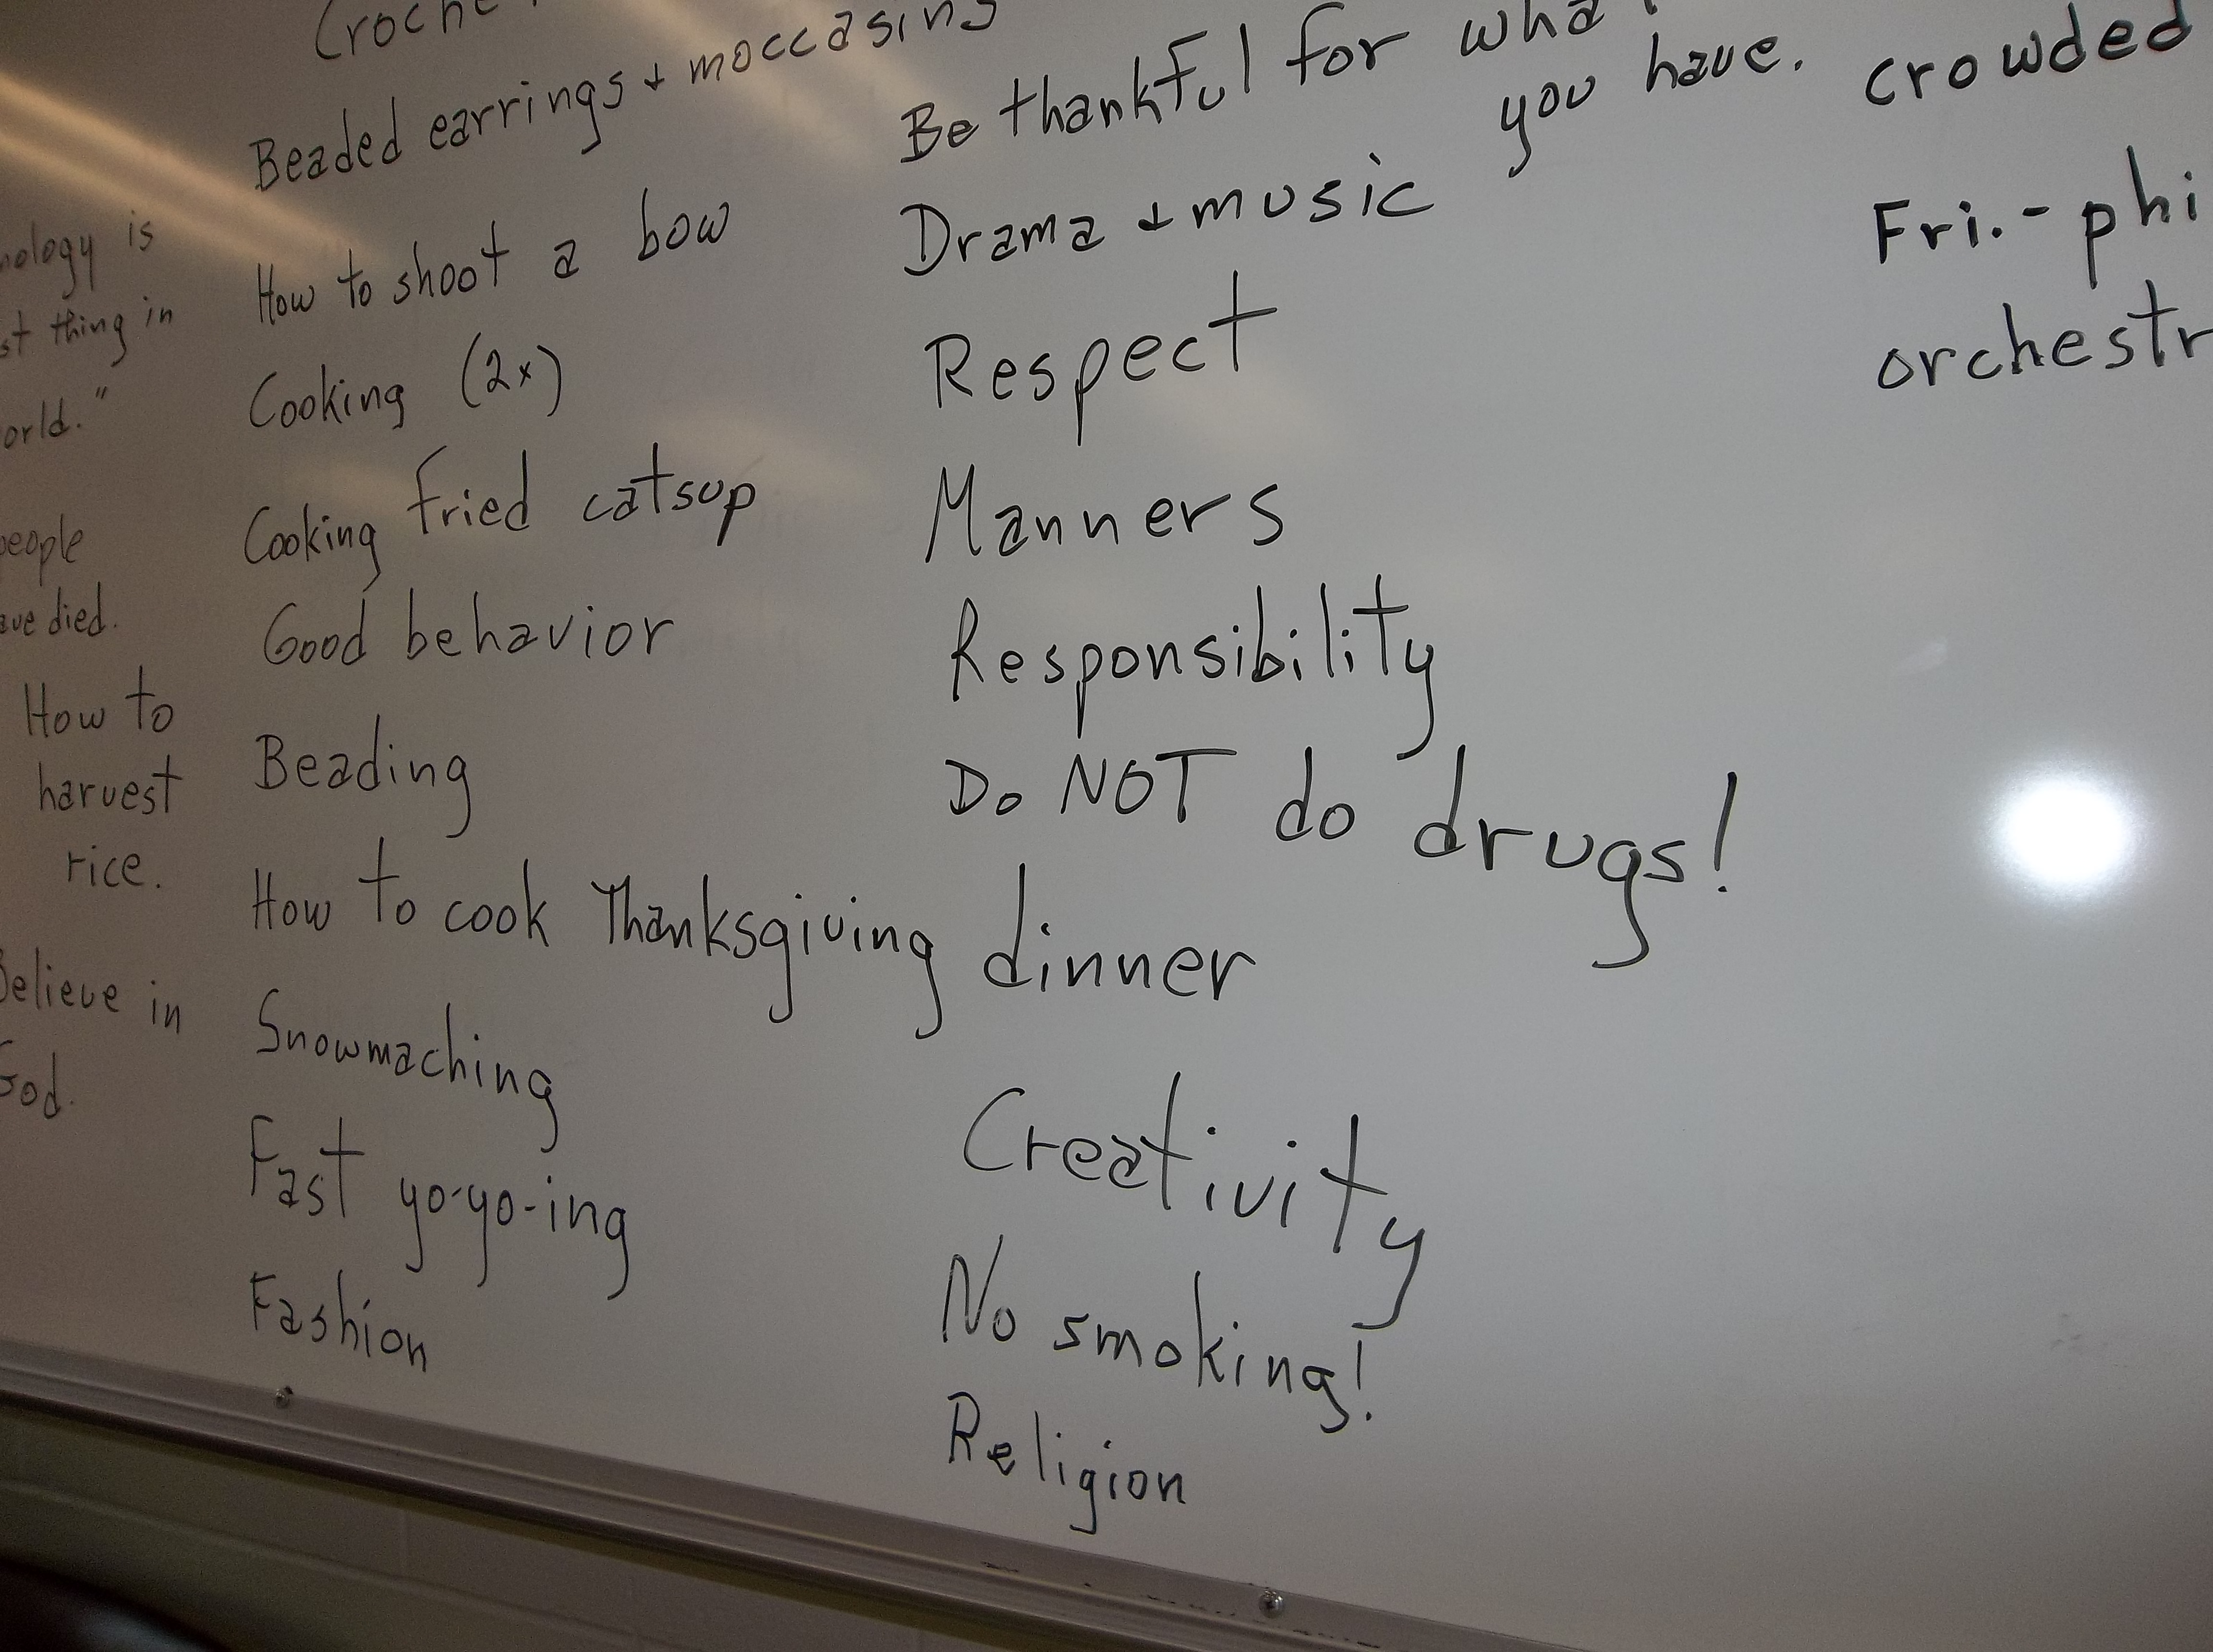 is
thing in
people
died.
How to
harvest
rice.
in
Beaded earrings + moccasins
How to shoot a bow
Cooking (2x)
Cooking fried catsup
Good behavior
Beading
How to cook Thanksgiving dinner
Snowmaching
Fast yo-yo-ing
Fashion
Be thankful for
you have.
Drama + music
Respect
Manners
Responsibility
Do NOT do drugs!
Creativity
No smoking!
Religion
crowded
Fri.-